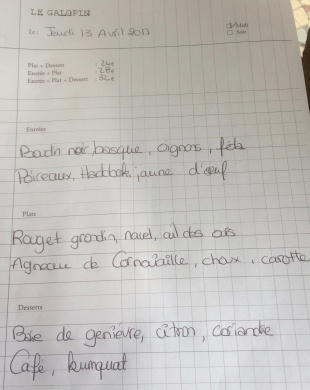 LE GALOPIN
Le: Jeudi 13 Avril 2017
☑ Midi
☐ Soir
Plat + Dessert : 24€
Entrée + Plat : 28€
Entrée + Plat + Dessert : 32€
Entrées
Boudin noir basque, oignons, feta
Poireaux, Haddock, jaune d'oeuf
Plats
Rouget grondin, navet, ail des ours
Agneau de Cornouaille, choux, carotte
Desserts
Baie de genièvre, citron, coriandre
Café, kumquat